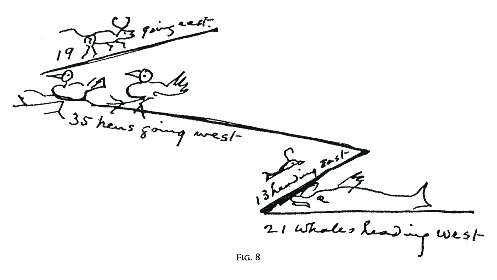 19 going east.
35 hens going west
13 heading east
21 whales heading west
FIG. 8